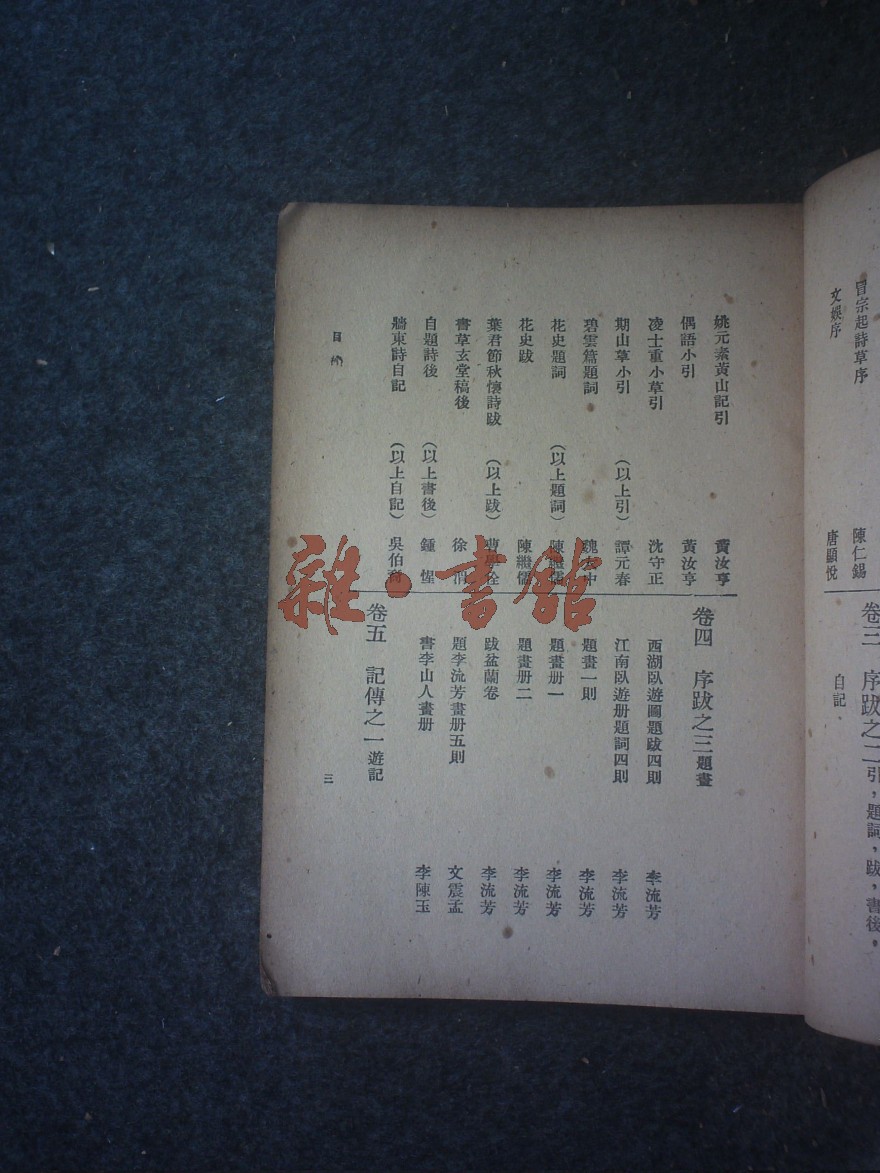 冒宗起詩草序 陳仁錫
文娛序 唐顯悅
卷三 序跋之二 引，題詞，跋，書後，
自記．
姚元素黃山記引 黃汝亨
偶語小引 黃汝亨
凌士重小草引 沈守正
期山草小引 （以上引） 譚元春
碧雲篇題詞
花史題詞 （以上題詞） 陳繼儒
花史跋 陳繼儒
葉君節秋懷詩跋 （以上跋） 曹學佺
書草玄堂稿後 徐渭
自題詩後 （以上書後） 鍾惺
牆東詩自記 （以上自記） 吳伯裔
卷四 序跋之三 題畫
西湖臥遊圖題跋四則 李流芳
江南臥遊册題詞四則 李流芳
題畫一則 李流芳
題畫册一 李流芳
題畫册二 李流芳
跋盆蘭卷 李流芳
題李流芳畫册五則 文震孟
書李山人畫册 李陳玉
卷五 記傳之一 遊記
目錄
三
雜·書館